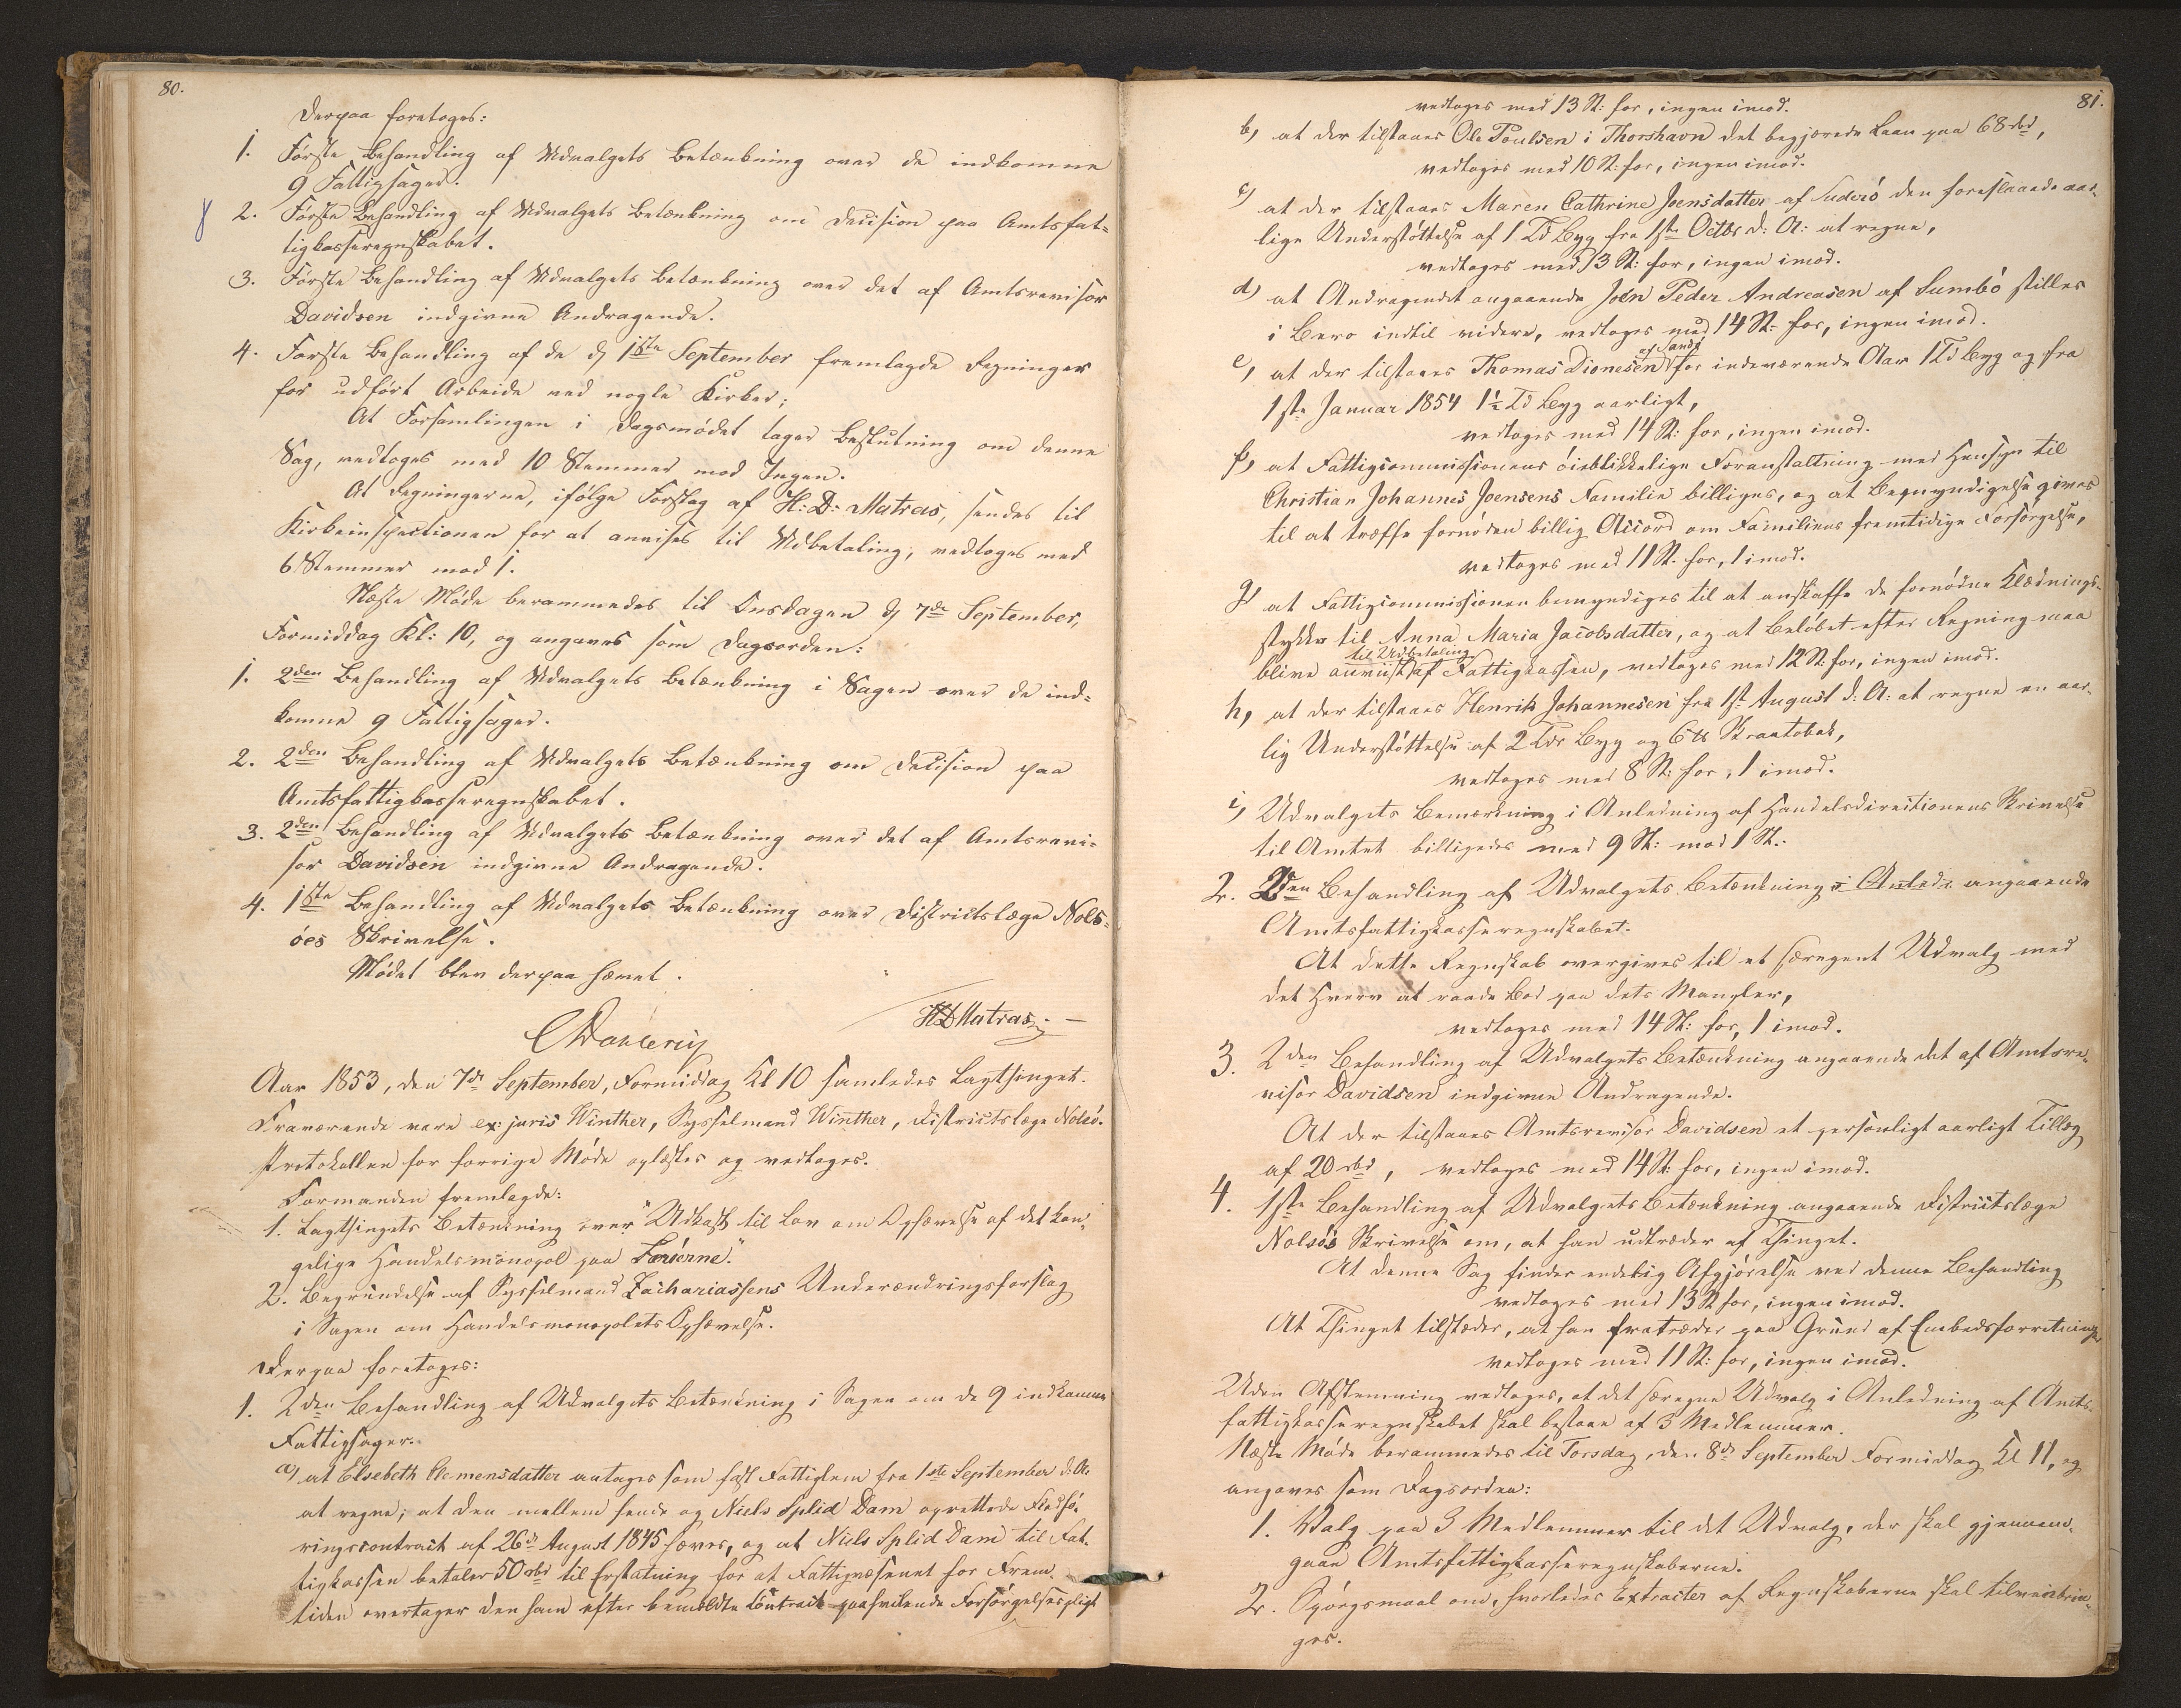 80.
Derpaa foretoges:
1. Første Behandling af Udvalgets Betænkning over de indkomne
9 Fattigsager.
2. Første Behandling af Udvalgets Betænkning om Decision paa Amtsfat-
tigkasseregnskabet.
3. Første Behandling af Udvalgets Betænkning over det af Amtsrevisor
Davidsen indgivne Andragende.
4. Første Behandling af de d. 1ste September fremlagde Regninger
for udført Arbeide ved nogle Kirker;
At Forsamlingen i Dagsmødet tager Beslutning om denne
Sag, vedtoges med 10 Stemmer mod Ingen.
At Regningerne, ifølge Forslag af H: D: Matras, sendes til
Kirkeinspectionen for at anvises til Udbetaling, vedtoges med
6 Stemmer mod 1.
Næste Møde berammedes til Onsdagen d. 7de September,
Formiddag Kl: 10, og angaves som Dagsorden:
1. 2den Behandling af Udvalgets Betænkning i Sagen over de ind-
komne 9 Fattigsager.
2. 2den Behandling af Udvalgets Betænkning om Decision paa
Amtsfattigkasseregnskabet.
3. 2den Behandling af Udvalgets Betænkning over det af Amtsrevi-
sor Davidsen indgivne Andragende.
4. 1ste Behandling af Udvalgets Betænkning over Districtslæge Nols-
öes Skrivelse.
Mødet blev derpaa hævet.
CDahlerup
HDMatras.
Aar 1853, den 7de September, Formiddag Kl 10 samledes Lagthinget.
Fraværende vare ex: juris Winther, Sysselmand Winther, Districtslæge Nolsö.
Protokollen for forrige Møde oplæstes og vedtoges.
Formanden fremlagde:
1. Lagthingets Betænkning over "Udkast til Lov om Ophævelse af det kon-
gelige Handelsmonopol paa Færöerne."
2. Begrundelse af Sysselmand Zachariassens Underændringsforslag
i Sagen om Handelsmonopolets Ophævelse.
Derpaa foretoges:
1. 2den Behandling af Udvalgets Betænkning i Sagen om de 9 indkomne
Fattigsager.
a) at Elsebeth Clemensdatter antages som fast Fattiglem fra 1ste September d. A.
at regne; at den mellem hende og Niels Splid Dam oprettede Fledfö-
ringscontract af 26de August 1845 hæves, og at Niels Splid Dam til Fat-
tigkassen betaler 50 rbd til Erstatning for at Fattigvæsenet for Frem-
tiden overtager den ham efter bemeldte Contract paahvilende Forsörgelsespligt
81.
vedtoges med 13 St: for, ingen imod.
b) at der tilstaaes Ole Poulsen i Thorshavn det begjærede Laan paa 68 rbd,
vedtoges med 10 St: for, ingen imod.
c) at der tilstaaes Maren Cathrine Joensdatter af Suderö den foreslaaede aar-
lige Understöttelse af 1 Td Byg fra 1ste Octbr d: A: at regne,
vedtoges med 13 St: for, ingen imod.
d) at Andragendet angaaende Joen Peder Andreasen af Sumbö stilles
i Bero indtil videre, vedtoges med 14 St: for, ingen imod.
af Sandö
e) at der tilstaaes Thomas Dionesen for indeværende Aar 1 Td Byg og fra
1ste Januar 1854 1½ Td Byg aarligt,
vedtoges med 14 St: for, ingen imod.
f) at Fattigcommissionens öieblikkelige Foranstaltning med Hensyn til
Christian Johannes Joensens Familie billiges, og at Bemyndigelse gives
til at træffe fornöden billig Accord om Familiens fremtidige Forsörgelse,
vedtoges med 11 St. for, 1 imod.
g) at Fattigcommissionen bemyndiges til at anskaffe de fornödne Klædnings-
stykker til Anna Maria Jacobsdatter, og at Belöbet efter Regning maa
til Udbetaling
blive anviist af Fattigkassen, vedtoges med 12 St: for, ingen imod.
h) at der tilstaaes Henrik Johannesen fra 1st August d: A: at regne en aar-
lig Understöttelse af 2 Tdr Byg og 6 ℔ Skraatobak,
vedtoges med 8 St: for, 1 imod.
i) Udvalgets Bemærkning i Anledning af Handelsdirectionens Skrivelse
til Amtet billigedes med 9 St: mod 1 St.
2. 2den Behandling af Udvalgets Betænkning i Anledn angaaende
Amtsfattigkasseregnskabet.
At dette Regnskab overgives til et særegent Udvalg med
det Hverv at raade Bod paa dets Mangler,
vedtoges med 14 St: for, 1 imod.
3. 2den Behandling af Udvalgets Betænkning angaaende det af Amtsre-
visor Davidsen indgivne Andragende.
At der tilstaaes Amtsrevisor Davidsen et personligt aarligt Tillæg
af 20 rbd, vedtoges med 14 St: for, ingen imod.
4. 1ste Behandling af Udvalgets Betænkning angaaende Districtslæge
Nolsö's Skrivelse om, at han udtræder af Thinget.
At denne Sag finder endelig Afgjörelse ved denne Behandling
vedtoges med 13 St for, ingen imod.
At Thinget tilsteder, at han fratræder paa Grund af Embedsforretninger
vedtoges med 11 St: for, ingen imod.
Uden Afstemning vedtoges, at det særegne Udvalg i Anledning af Amts-
fattigkasseregnskabet skal bestaae af 3 Medlemmer.
Næste Møde berammedes til Torsdag, den 8de September Formiddag Kl 11, og
angaves som Dagsorden:
1. Valg paa 3 Medlemmer til det Udvalg, der skal gjennem-
gaae Amtsfattigkasseregnskaberne.
2. Spörgsmaal om, hvorledes Extracter af Regnskaberne skal tilveiebrin-
ges.